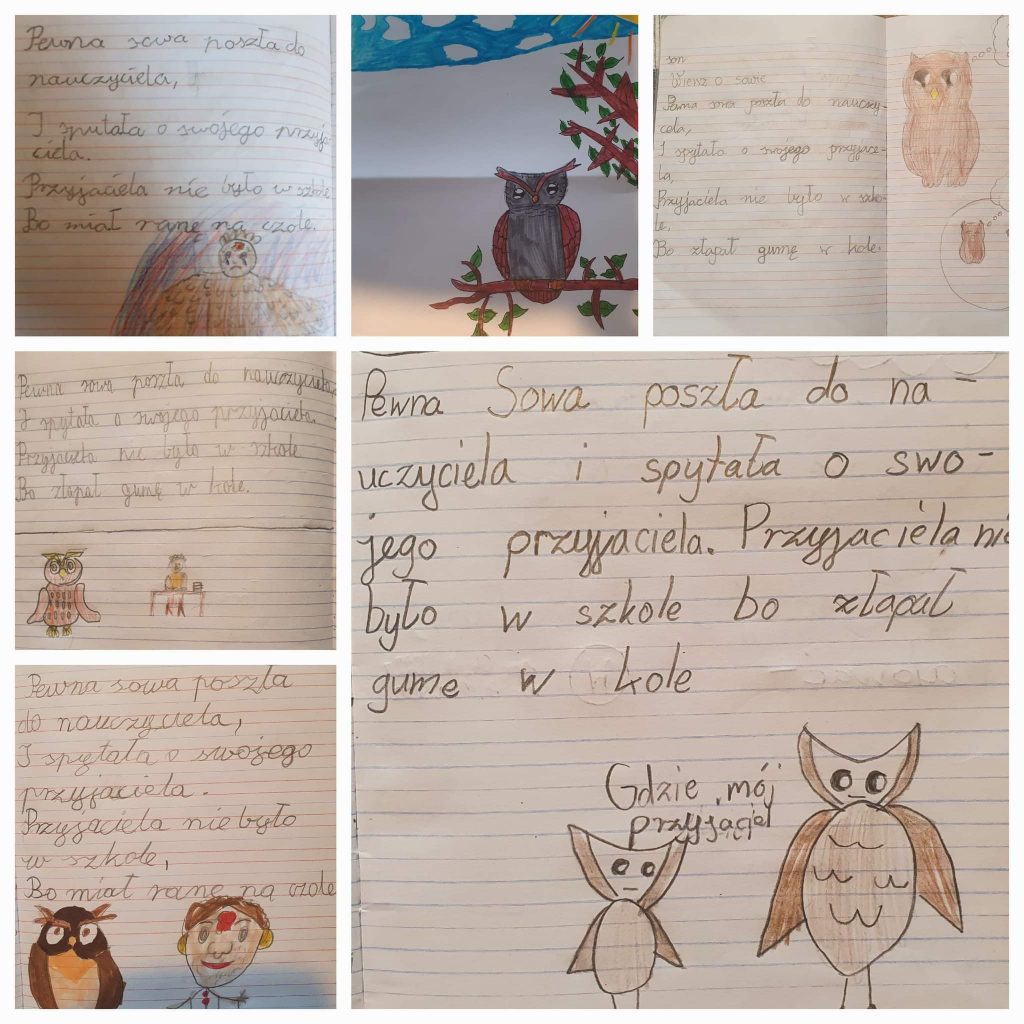 Pewna sowa poszła do
nauczyciela,
I sputała o swojego przyja
ciela.
Przyjaciela nie było w szkole
Bo miał ranę na czole.
Wiersz o sowie
Pewna sowa poszła do nauczy-
cela,
I spytała o swojego przyjace-
la,
Przyjaciela nie było w szko-
le,
Bo złapał gumę w kole.
Pewna sowa poszła do nauczyciela,
I spytała o swojego przyjaciela.
Przyjaciela nie było w szkole
Bo złapał gumę w kole.
Pewna Sowa poszła do na-
uczyciela i spytała o swo-
jego przyjaciela. Przyjaciela nie
było w szkole bo złapał
gume w kole
Gdzie mój
przyjaciel
Pewna sowa poszła
do nauczyciela,
I spytała o swojego
przyjaciela.
Przyjaciela nie było
w szkole,
Bo miał ranę na czole